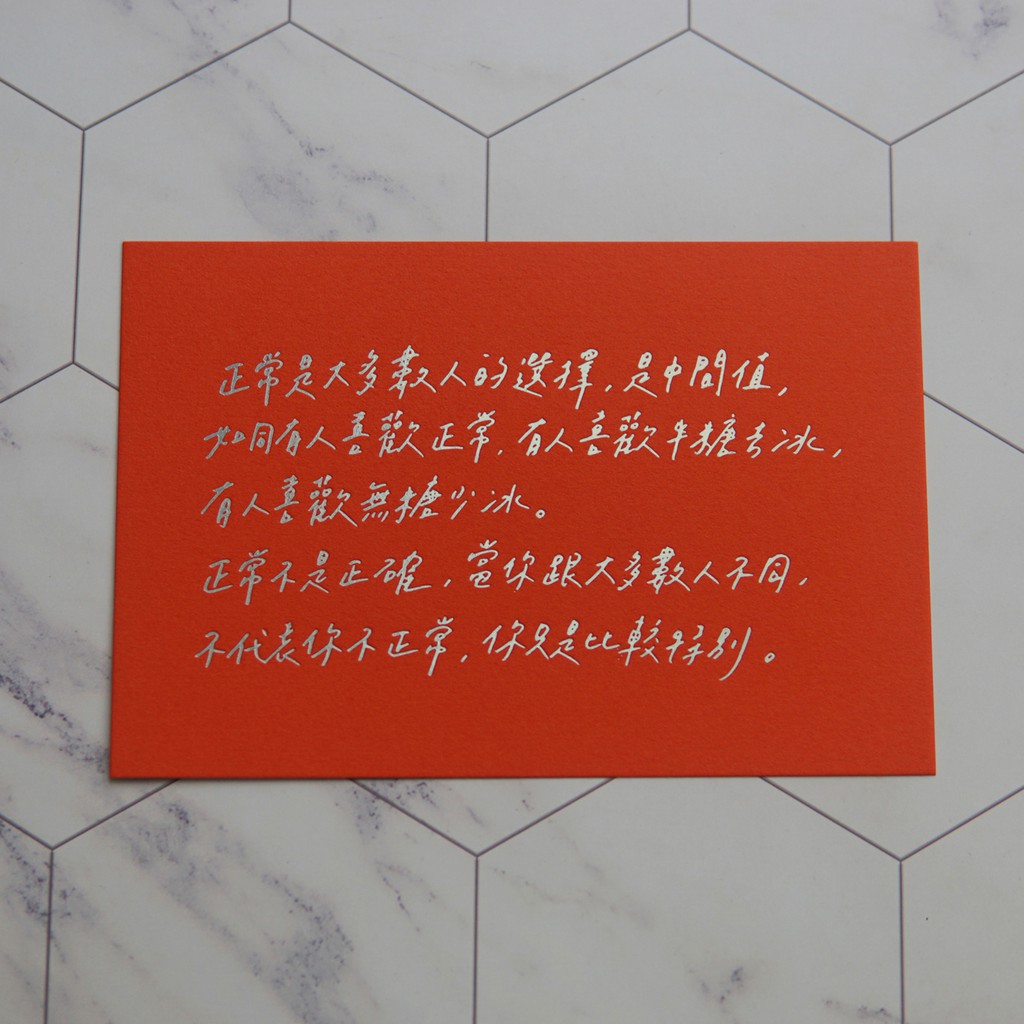 正常是大多數人的選擇，是中間值，
如同有人喜歡正常，有人喜歡半糖去冰，
有人喜歡無糖少冰。
正常不是正確，當你跟大多數人不同，
不代表你不正常，你只是比較特別。